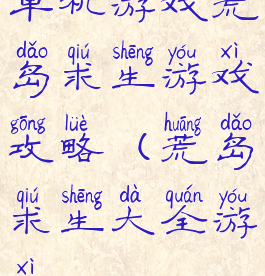 单机游戏荒
dǎo qiú shēng yóu xì
岛求生游戏
gōng lüè huāng dǎo
攻略（荒岛
qiú shēng dà quán yóu
求生大全游
xì